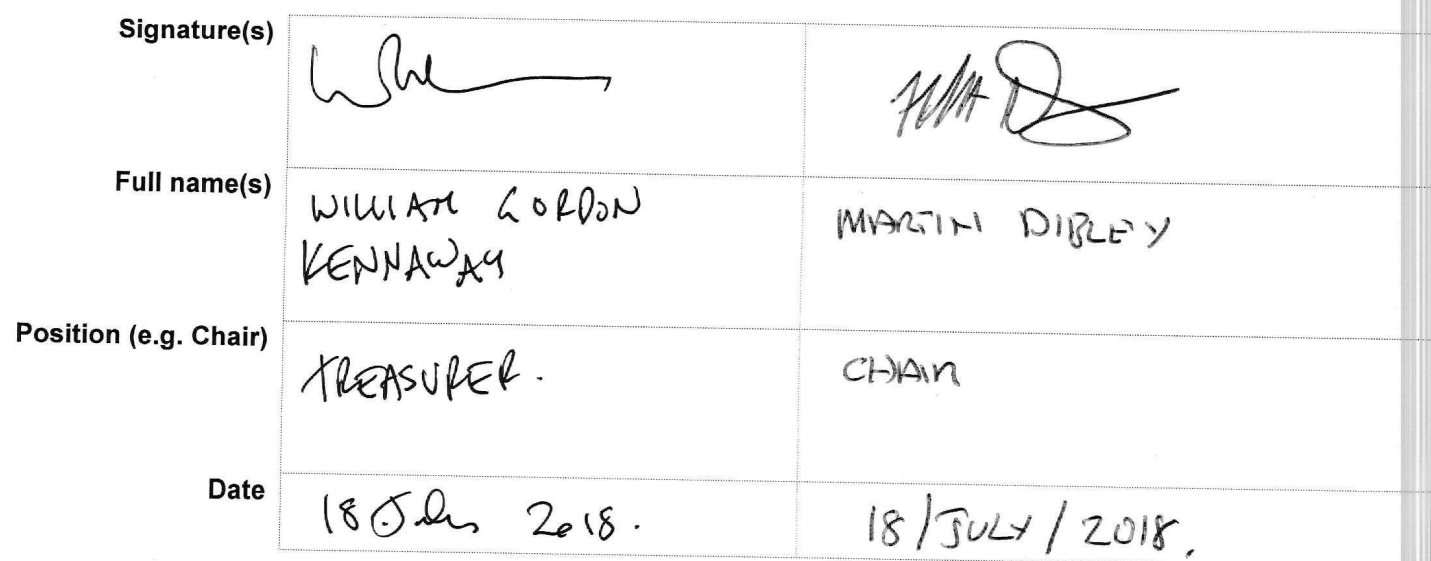 Signature(s)
Full name(s)
WILLIAM GORDON MARTIN DIBLEY
KENNAWAY
Position (e.g. Chair)
TREASURER. CHAIR
Date
18 July 2018. 18/JULY/2018.